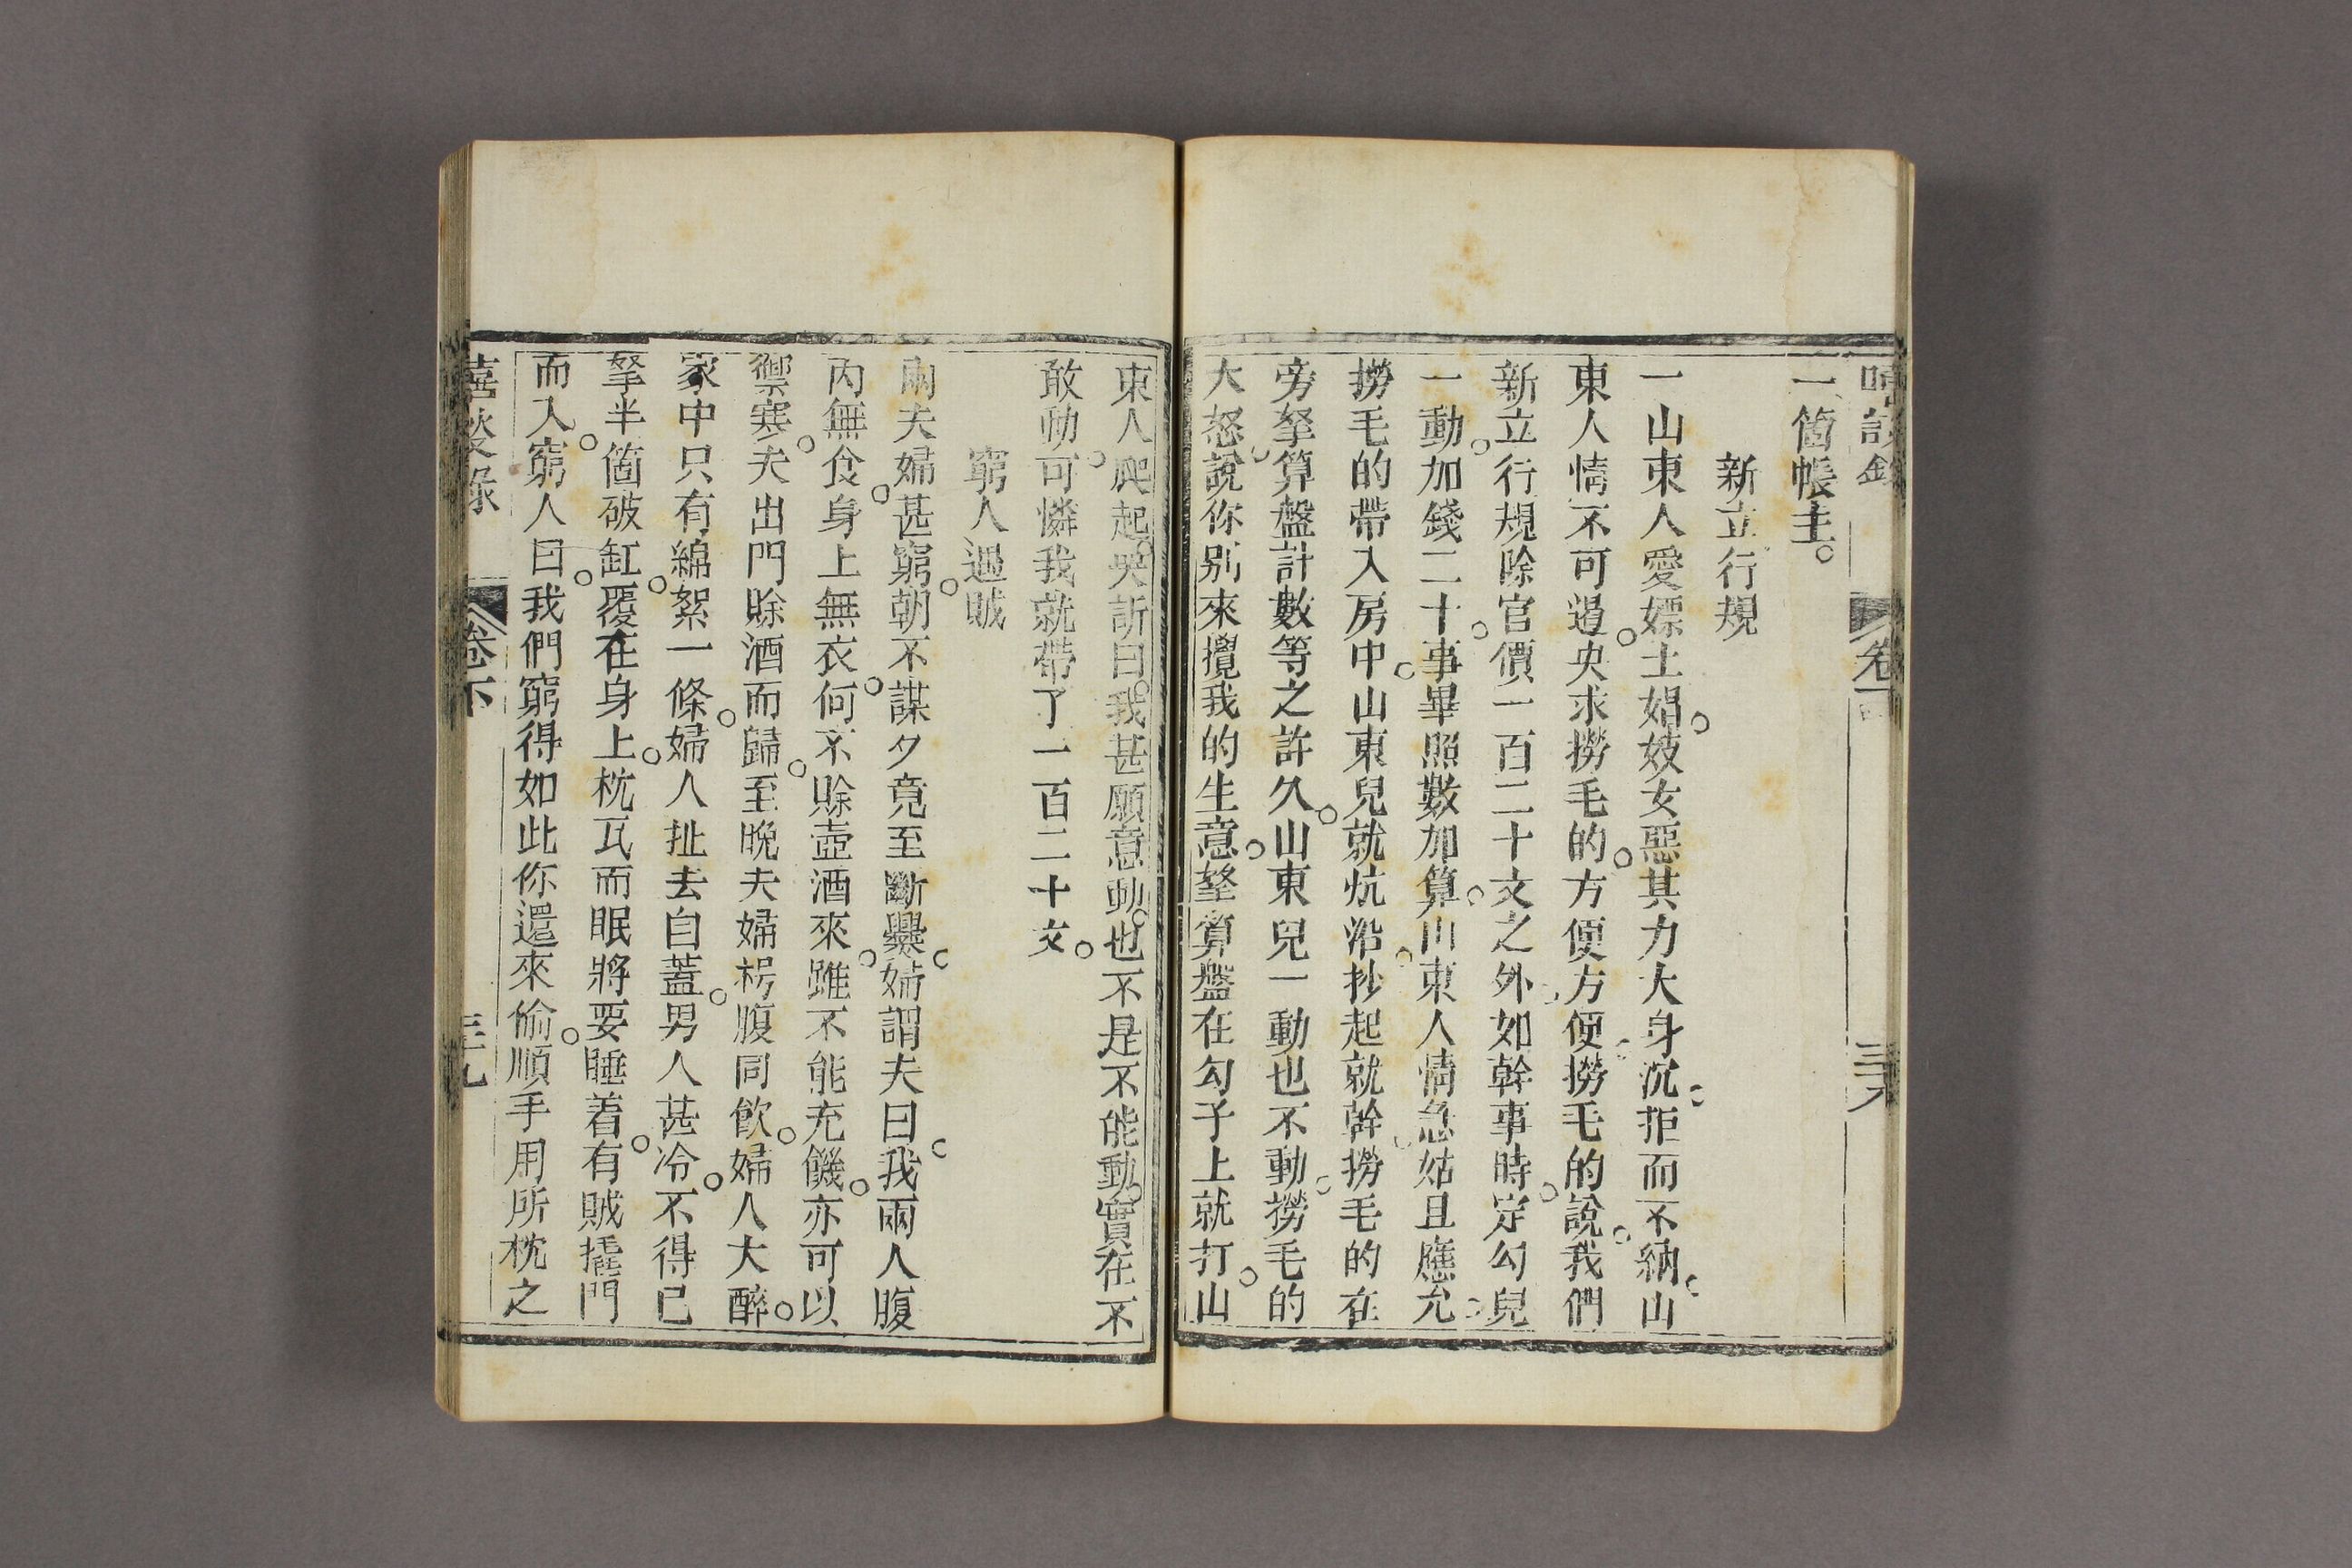 卷下
三六
一箇帳主。
新立行規
一山東人愛嫖土娼。妓女惡其力大身沉。拒而不納。山
東人情不可遏。央求撈毛的。方便方便。撈毛的說。我們
新立行規。除官價一百二十文之外。如幹事時。定勾兒
一動。加錢二十。事畢照數加算。山東人情急。姑且應允。
撈毛的帶入房中。山東兒就炕沿。抄起就幹。撈毛的在
旁拏算盤計數。等之許久。山東兒一動也不動。撈毛的
大怒。說你別來攪我的生意。拏算盤在勾子上就打。山
東人爬起。哭訴曰。我甚願意動。也不是不能動。實在不
敢動。可憐我就帶了一百二十文。
窮人遇賊
兩夫婦甚窮。朝不謀夕。竟至斷爨。婦謂夫曰。我兩人腹
內無食。身上無衣。何不賒壺酒來。雖不能充饑。亦可以
禦寒。夫出門賒酒而歸。至晚夫婦枵腹同飲。婦人大醉。
家中只有綿絮一條。婦人扯去自蓋。男人甚冷。不得已
拏半箇破缸。覆在身上。枕瓦而眠。將要睡着。有賊撬門
而入。窮人曰。我們窮得如此。你還來偷。順手用所枕之
嘻談錄
卷下
三九